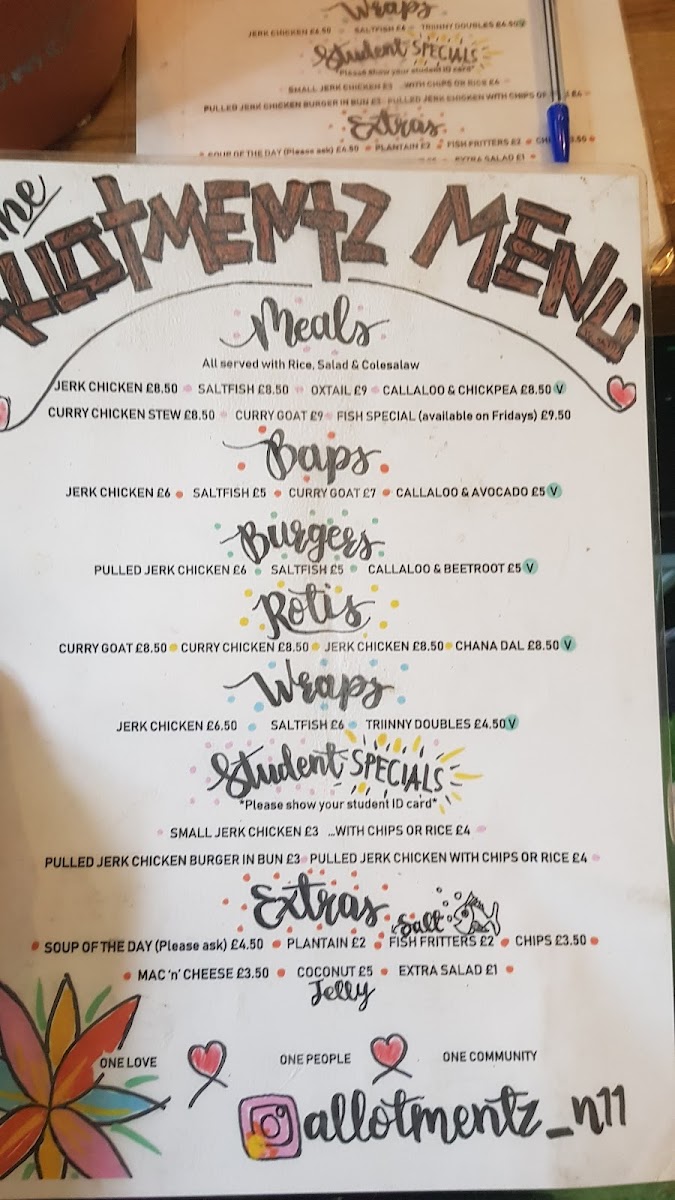 Wraps
JERK CHICKEN £6.50 SALTFISH £6 TRIINNY DOUBLES £4.50 V
Student SPECIALS
*Please show your student ID card*
SMALL JERK CHICKEN £3 ...WITH CHIPS OR RICE £4
PULLED JERK CHICKEN BURGER IN BUN £3 PULLED JERK CHICKEN WITH CHIPS OR £4
Extras
SOUP OF THE DAY (Please ask) £4.50 PLANTAIN £2 FISH FRITTERS £2
EXTRA SALAD £1
The
ALLOTMENTZ MENU
Meals
All served with Rice, Salad & Colesalaw
JERK CHICKEN £8.50 SALTFISH £8.50 OXTAIL £9 CALLALOO & CHICKPEA £8.50 V
CURRY CHICKEN STEW £8.50 CURRY GOAT £9 FISH SPECIAL (available on Fridays) £9.50
Baps
JERK CHICKEN £6 SALTFISH £5 CURRY GOAT £7 CALLALOO & AVOCADO £5 V
Burgers
PULLED JERK CHICKEN £6 SALTFISH £5 CALLALOO & BEETROOT £5 V
Rotis
CURRY GOAT £8.50 CURRY CHICKEN £8.50 JERK CHICKEN £8.50 CHANA DAL £8.50 V
Wraps
JERK CHICKEN £6.50 SALTFISH £6 TRIINNY DOUBLES £4.50 V
Student SPECIALS
*Please show your student ID card*
SMALL JERK CHICKEN £3 ...WITH CHIPS OR RICE £4
PULLED JERK CHICKEN BURGER IN BUN £3 PULLED JERK CHICKEN WITH CHIPS OR RICE £4
Extras
Salt
SOUP OF THE DAY (Please ask) £4.50 PLANTAIN £2 FISH FRITTERS £2 CHIPS £3.50
MAC 'n' CHEESE £3.50 COCONUT £5 EXTRA SALAD £1
Jelly
ONE LOVE ONE PEOPLE ONE COMMUNITY
allotmentz_n11